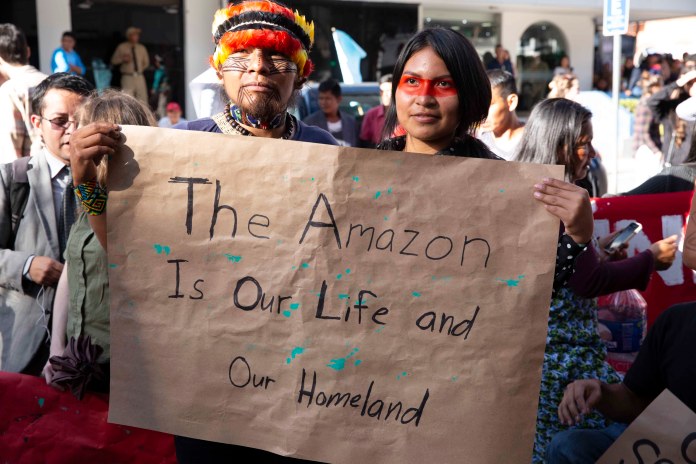 The Amazon
Is Our Life and
Our Homeland